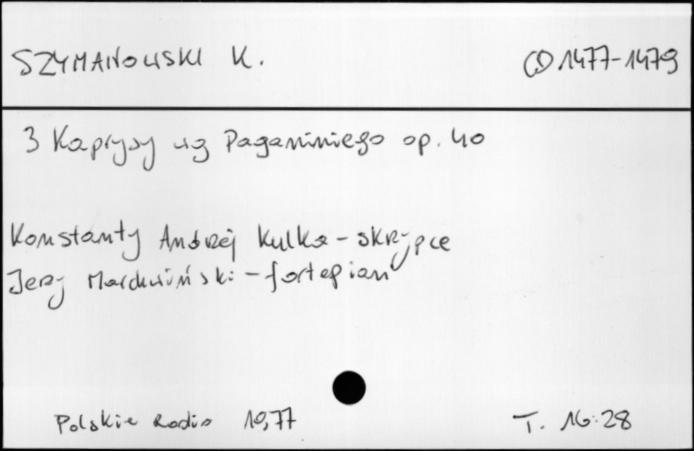 SZYMANOWSKI K. CD 1477-1479
3 Kaprysy wg Paganiniego op. 40
Konstanty Andrzej Kulka - skrzypce
Jerzy Marchwiński - fortepian
Polskie Radio 10,77 T. 16:28